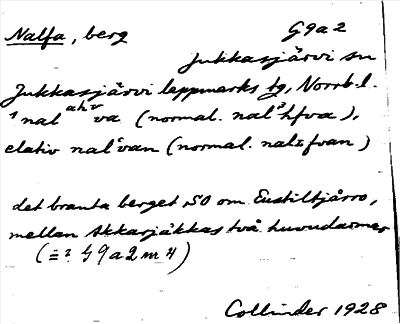 Nalfa, berg G9a2
Jukkasjärvi sn
Jukkasjärvi lappmarks tg, Norrb.l.
va (normal. ),
elativ (normal. )
det branta berget SO om Eustiltjårro,
mellan Akkarjåkkas två huvudarmar
(=? G9a2m4)
Collinder 1928